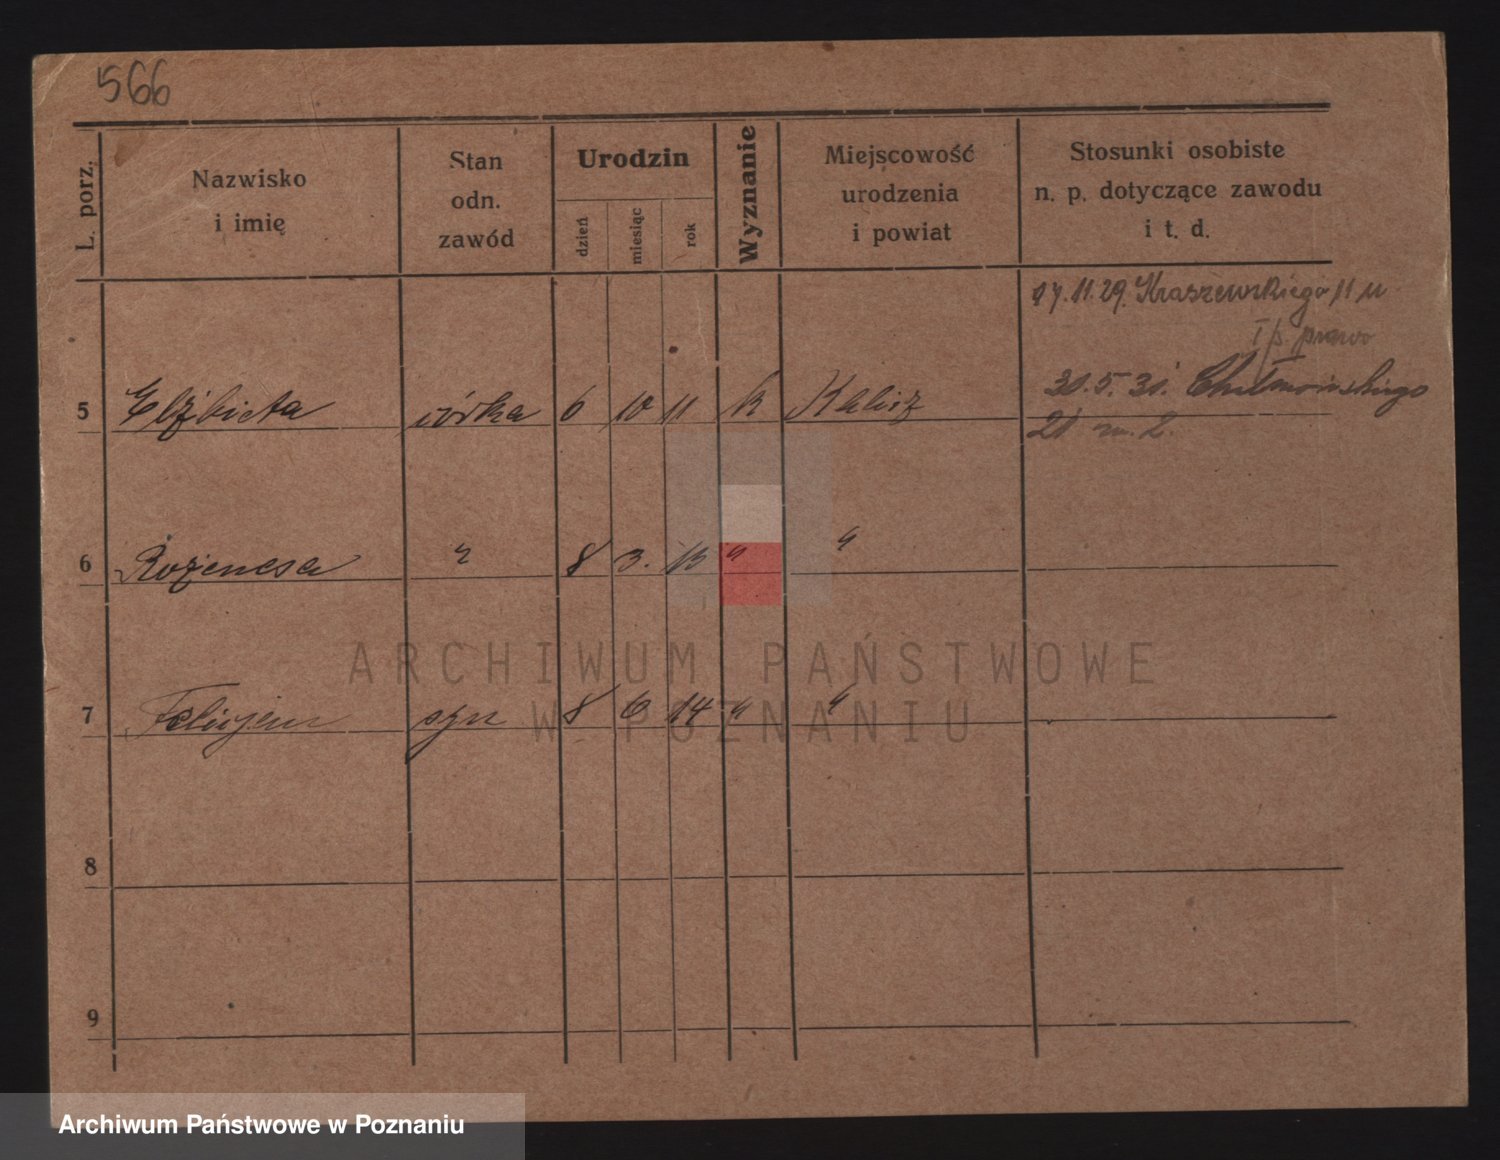 566
L. porz.
Nazwisko
i imię
Stan
odn.
zawód
Urodzin
dzień
miesiąc
rok
Wyznanie
Miejscowość
urodzenia
i powiat
Stosunki osobiste
n. p. dotyczące zawodu
i t. d.
17.11.29. Kraszewskiego 11
I p. prawo
5 Elżbieta córka 6 10 11 k Kalisz
30.5.31. Chełmońskiego
21 m. 2.
6 " 8 3. 13 " "
7 Felicjan syn 8 6 14 " "
8
9
ARCHIWUM PAŃSTWOWE
W POZNANIU
Archiwum Państwowe w Poznaniu